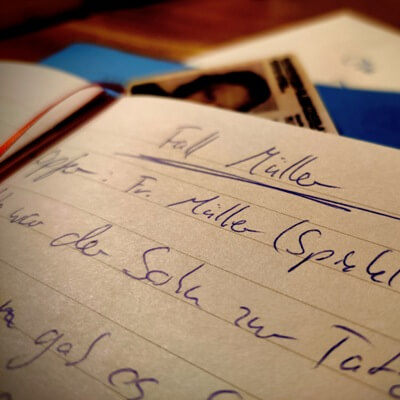 Fall Müller
Opfer: Fr. Müller (Spiel
war der Sohn zur Tat
gab es